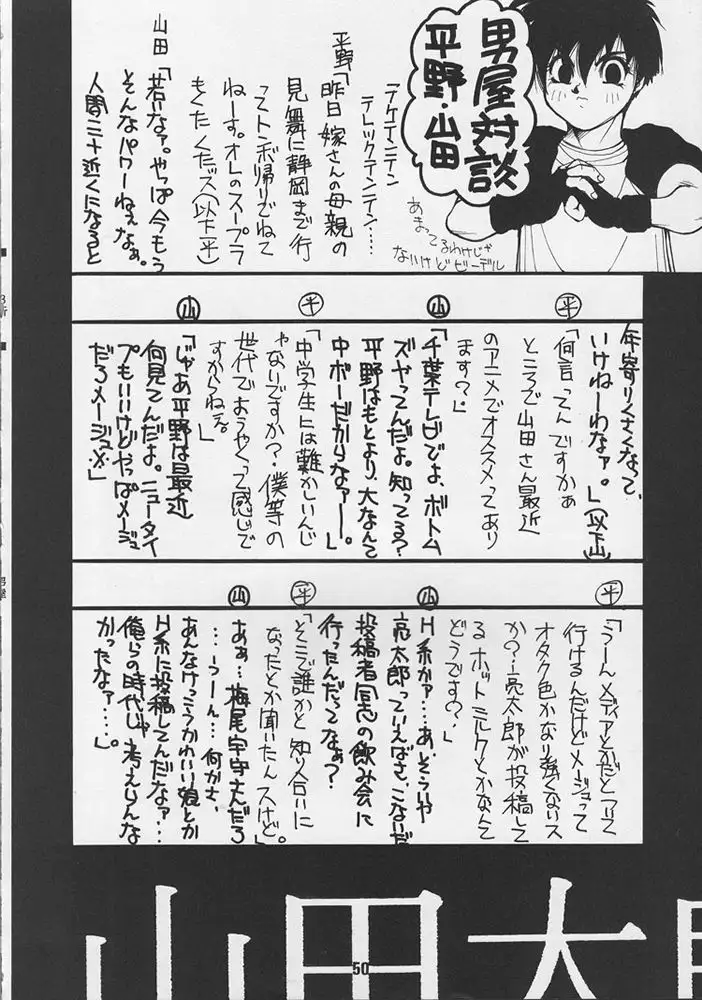 男屋対談
平野・山田
あまってるわけじゃ
ないけどビーデル
テケテンテン
テレックテンテン…
平野「昨日嫁さんの母親の
見舞に静岡まで行
ってトンボ帰りでねて
ねーす。オレのスープラ
もくたくたッス(以下平)
山田「若いなァ。やっぱ今もう
そんなパワーねぇなぁ。
人間三十近くになると
年寄りくさくなって、
いけねーわなァ。」(以下山)
平
「何言ってんですかぁ
ところで山田さん最近
のアニメでオススメってあり
ます?」
山
「千葉テレビでよ、ボトム
ズやってんだよ。知ってる?
平野はもとより、大なんて
中ボーだからなァー。」
平
「中学生には難かしいんじ
ゃないですか?僕等の
世代でようやくって感じで
すからねぇ。」
山
「じゃあ平野は最近
何見てんだよ。ニュータイ
プもいいけどやっぱメージュ
だろメージュ〆」
平
「うーんメディアとかだとついて
行けるんだけどメージュって
オタク色かなり強くないス
か?亮太郎が投稿して
る ホットミルクとかなんて
どうです?」
山
H系かァ…あ、そういや
亮太郎っていえばさ、こないだ
投稿者同志の飲み会に
行ったんだってなぁ?
平
「そこで誰かと知り合いに
なったとか聞いたんスけど。」
山
あぁ…梅尾宇守さんだろ
…うーん…何かさ、
あんなけっこうかわいい娘とか
H系に投稿してんだなァ…
俺らの時代じゃ考えらんな
かったなァ…」。
山田太
50